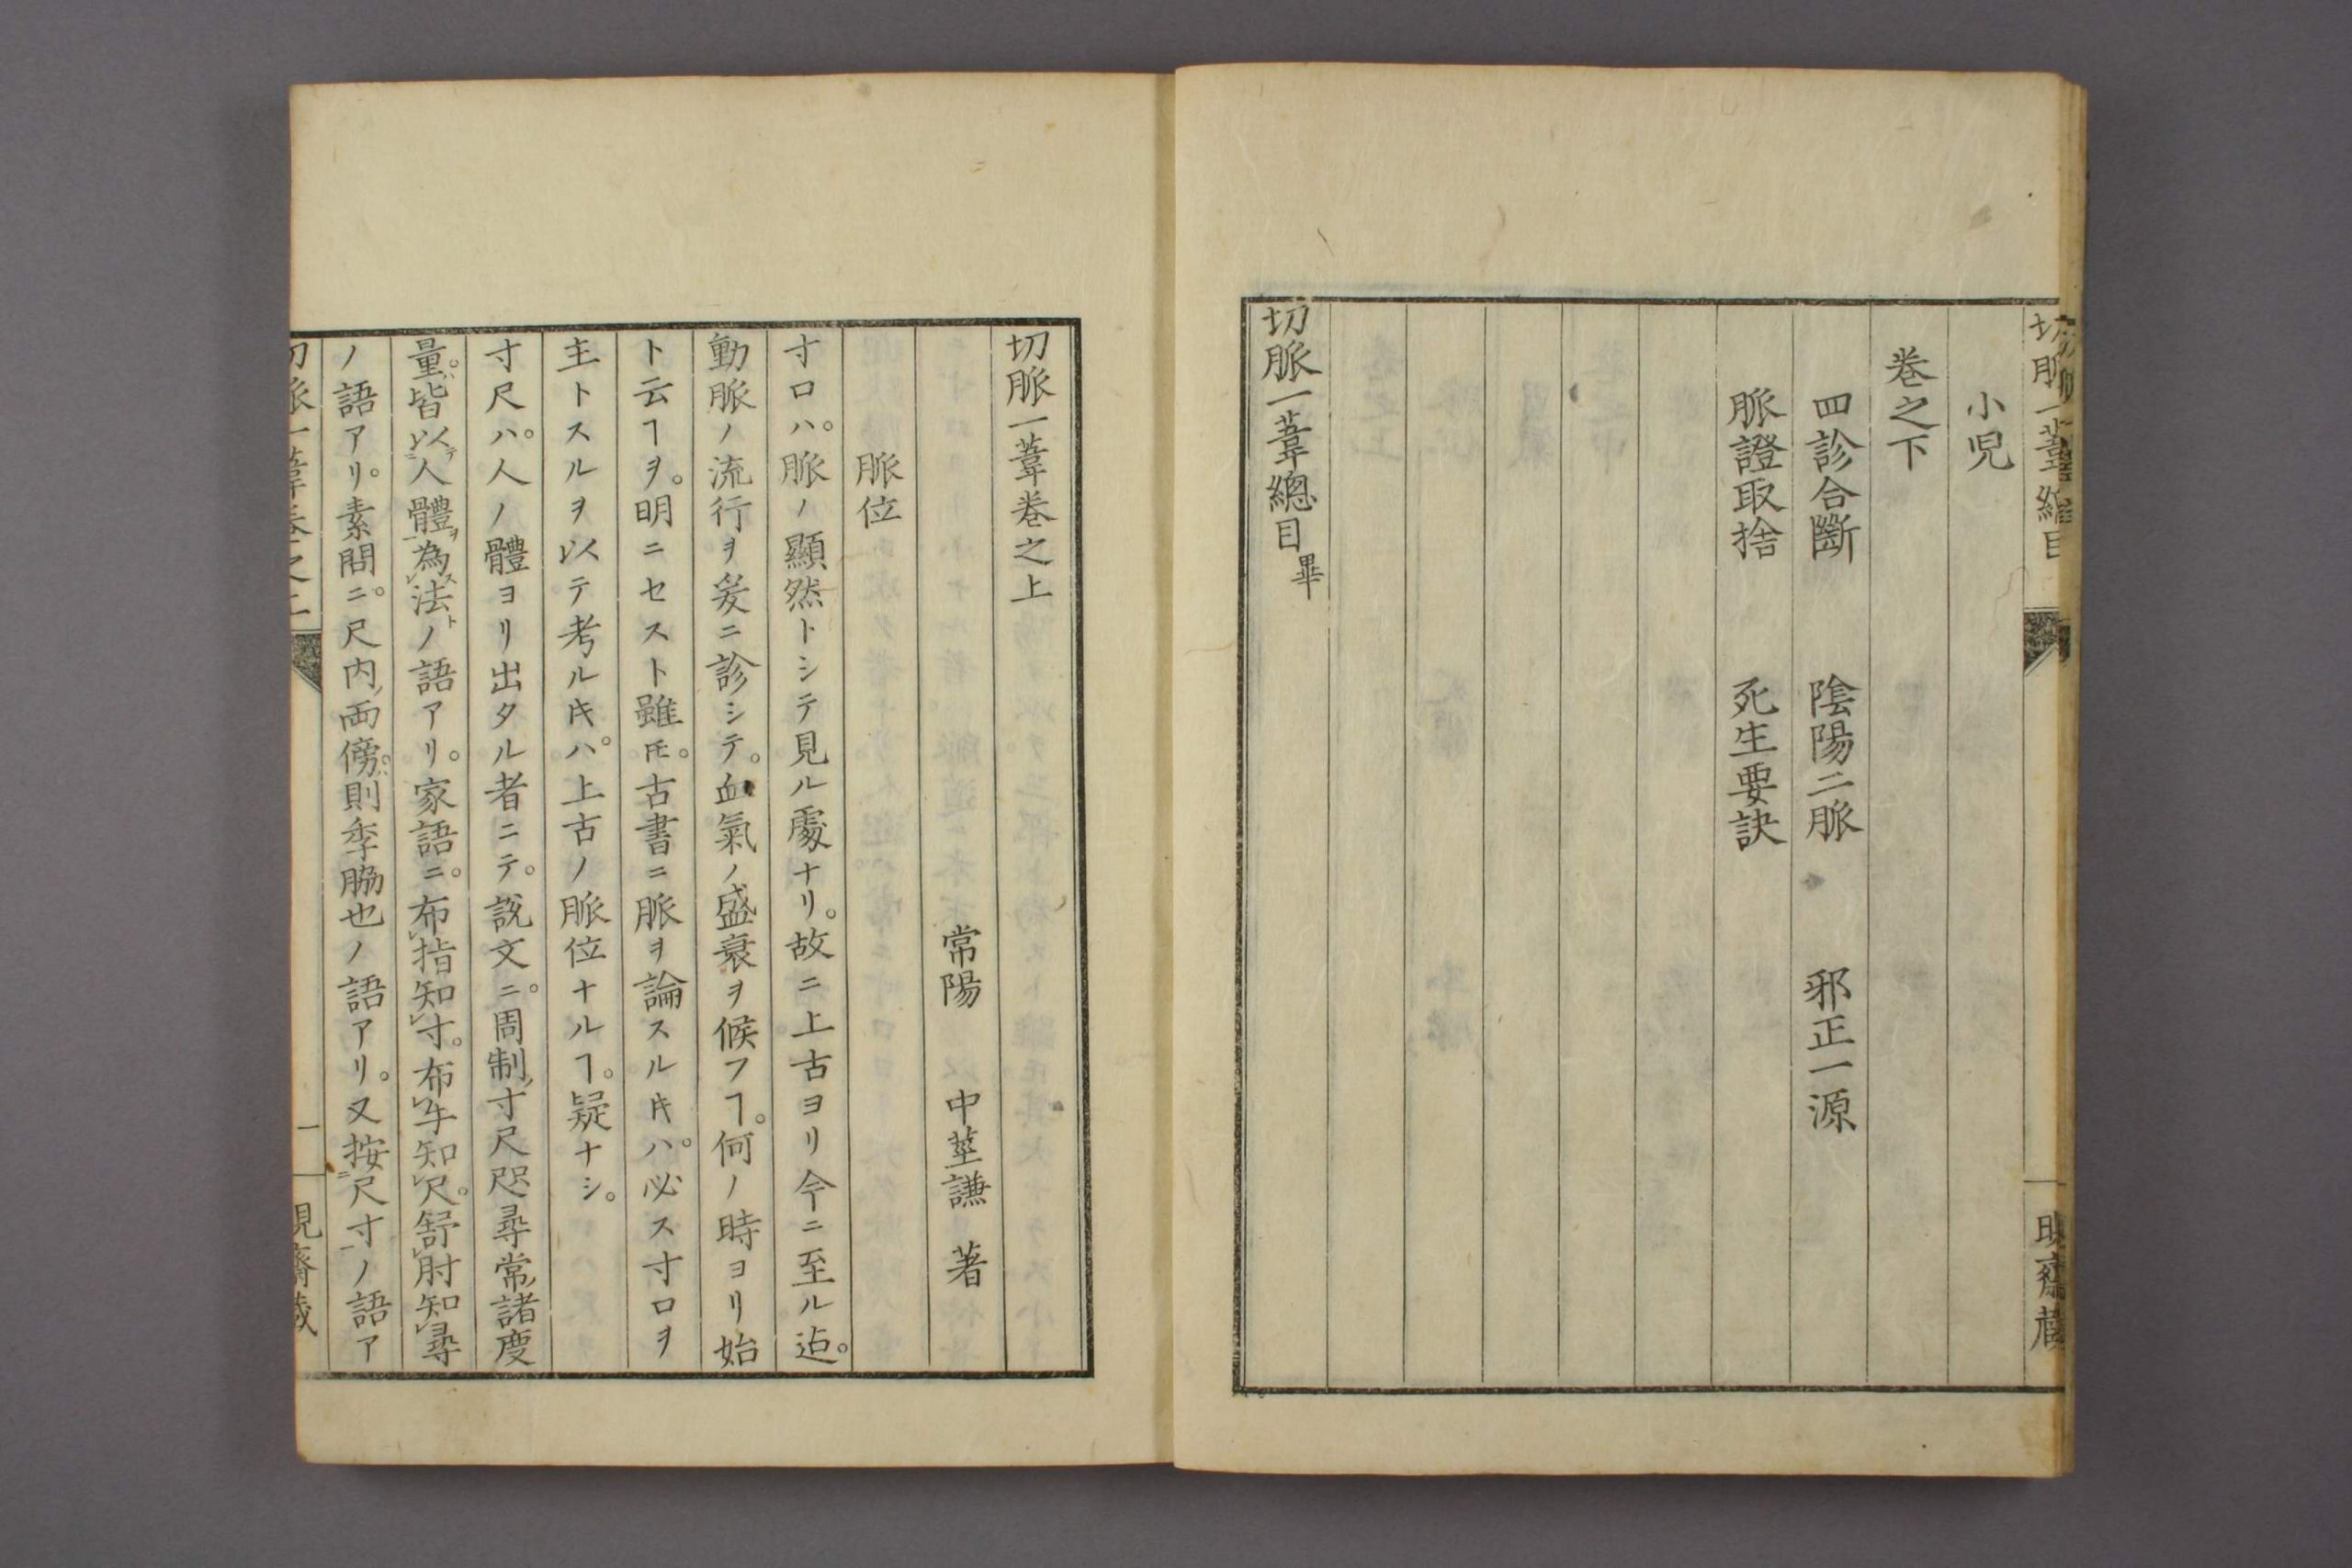 切脈一葦總目
小児
巻之下
四診合斷 陰陽二脈 邪正一源
脈證取捨 死生要訣
切脈一葦總目畢
切脈一葦巻之上
常陽 中莖謙 著
脈位
寸口ハ。脈ノ顯然トシテ見ル處ナリ。故ニ上古ヨリ今ニ至ル迠。
動脈ノ流行ヲ爰ニ診シテ。血氣ノ盛衰ヲ候フヿ。何ノ時ヨリ始
ト云ヿヲ。明ニセスト雖𪜈。古書ニ脈ヲ論スルキハ。必ス寸口ヲ
主トスルヲ以テ考ルキハ。上古ノ脈位ナルヿ。疑ナシ。
寸尺ハ。人ノ體ヨリ出タル者ニテ。説文ニ。周制寸尺咫尋常諸度
量。皆以人體為法ノ語アリ。家語ニ。布指知寸。布手知尺。舒肘知尋
ノ語アリ。素問ニ。尺内両傍。則季脇也ノ語アリ。又按尺寸ノ語ア
切脈一葦巻之上 一